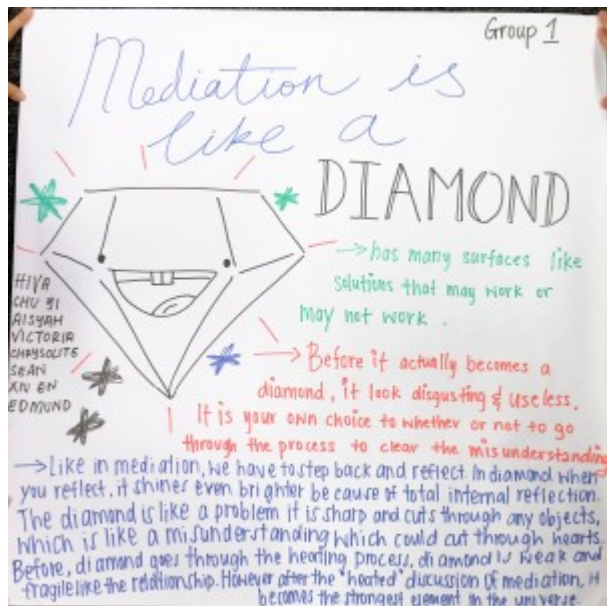 Group 1
Mediation is
like a
DIAMOND
→ has many surfaces like
solutions that may work or
may not work.
HIYA
CHU YI
AISYAH
VICTORIA
CHRYSOLITE
SEAN
XIU EN
EDMUND
→ Before it actually becomes a
diamond, it look disgusting & useless.
It is your own choice to whether or not to go
through the process to clear the misunderstanding
→ Like in mediation, we have to step back and reflect. In diamond when
you reflect, it shines even brighter because of total internal reflection.
The diamond is like a problem it is sharp and cuts through any objects,
which is like a misunderstanding which could cut through hearts.
Before, diamond goes through the heating process, diamond is weak and
fragile like the relationship. However after the "heated" discussion of mediation, it
becomes the strongest element in the universe.